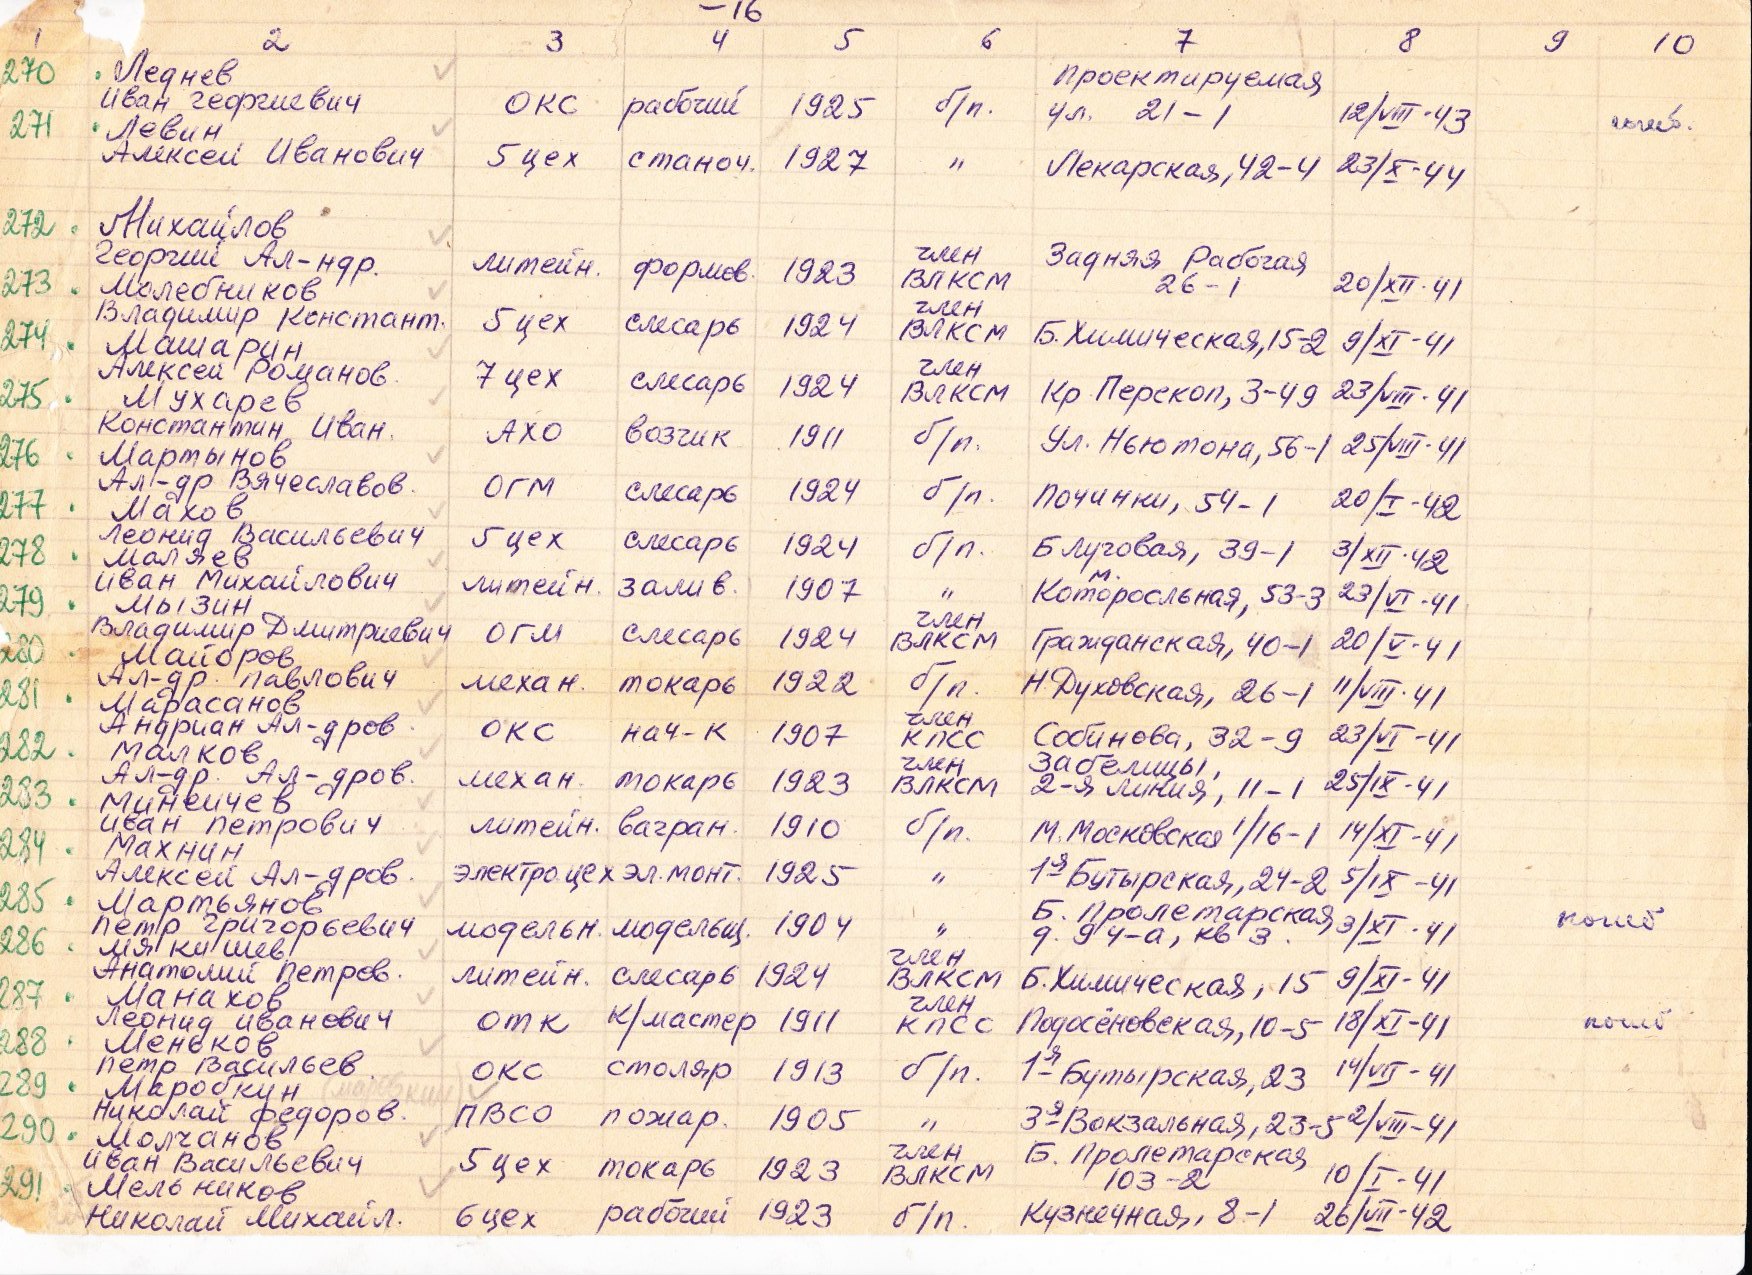 -16
1 2 3 4 5 6 7 8 9 10
270 Леднев Проектируемая
Иван Георгиевич ОКС рабочий 1925 б/п. ул. 21-1 12/VIII-43
271 Левин погиб.
Алексей Иванович 5 цех станоч. 1927 " Пекарская, 42-4 23/X-44
272 Михайлов
Георгий Ал-ндр. литейн. формов. 1923 член ВЛКСМ Задняя Рабочая 26-1 20/XII-41
273 Молебников
Владимир Констант. 5 цех слесарь 1924 член ВЛКСМ Б. Химическая, 15-2 9/XI-41
274 Машарин
Алексей Романов. 7 цех слесарь 1924 член ВЛКСМ Кр Перекоп, 3-49 23/VIII-41
275 Мухарев
Константин Иван. АХО возчик 1911 б/п. Ул. Ньютона, 56-1 25/VIII-41
276 Мартынов
Ал-др Вячеславов. ОГМ слесарь 1924 б/п. Починки, 54-1 20/I-42
277 Махов
Леонид Васильевич 5 цех слесарь 1924 б/п. Б Луговая, 39-1 3/XII-42
278 Маляев
Иван Михайлович литейн. залив. 1907 " м. Которосльная, 53-3 23/VI-41
279 Мызин
Владимир Дмитриевич ОГМ слесарь 1924 член ВЛКСМ Гражданская, 40-1 20/V-41
280 Майоров
Ал-др. Павлович механ. токарь 1922 б/п. Н Духовская, 26-1 11/VIII-41
281 Марасанов
Андриан Ал-дров. ОКС нач-к 1907 член КПСС Собинова, 32-9 23/VI-41
282 Малков
Ал-др. Ал-дров. механ. токарь 1923 член ВЛКСМ Забелицы, 2-я линия, 11-1 25/IX-41
283 Минеичев
Иван Петрович литейн. вагран. 1910 б/п. М. Московская 1/16-1 14/XI-41
284 Махнин
Алексей Ал-дров. электроцех эл. монт. 1925 " 1я Бутырская, 24-2 5/IX-41
285 Мартьянов
Петр Григорьевич модельн. модельщ. 1904 " Б. Пролетарская д. 94-а, кв 3. 3/XI-41 погиб
286 Мякишев
Анатолий Петров. литейн. слесарь 1924 член ВЛКСМ Б. Химическая, 15 9/XI-41
287 Манахов
Леонид Иванович ОТК к/мастер 1911 член КПСС Подосёновская, 10-5 18/XI-41 погиб
288 Меньков
Петр Васильев. ОКС столяр 1913 б/п. 1-я Бутырская, 23 14/VII-41
289 Маробкин
Николай Федоров. ПВСО пожар. 1905 " 3-я Вокзальная, 23-5 2/VIII-41
290 Молчанов
Иван Васильевич 5 цех токарь 1923 член ВЛКСМ Б. Пролетарская 103-2 10/I-41
291 Мельников
Николай Михайл. 6 цех рабочий 1923 б/п. Кузнечная, 8-1 26/VII-42